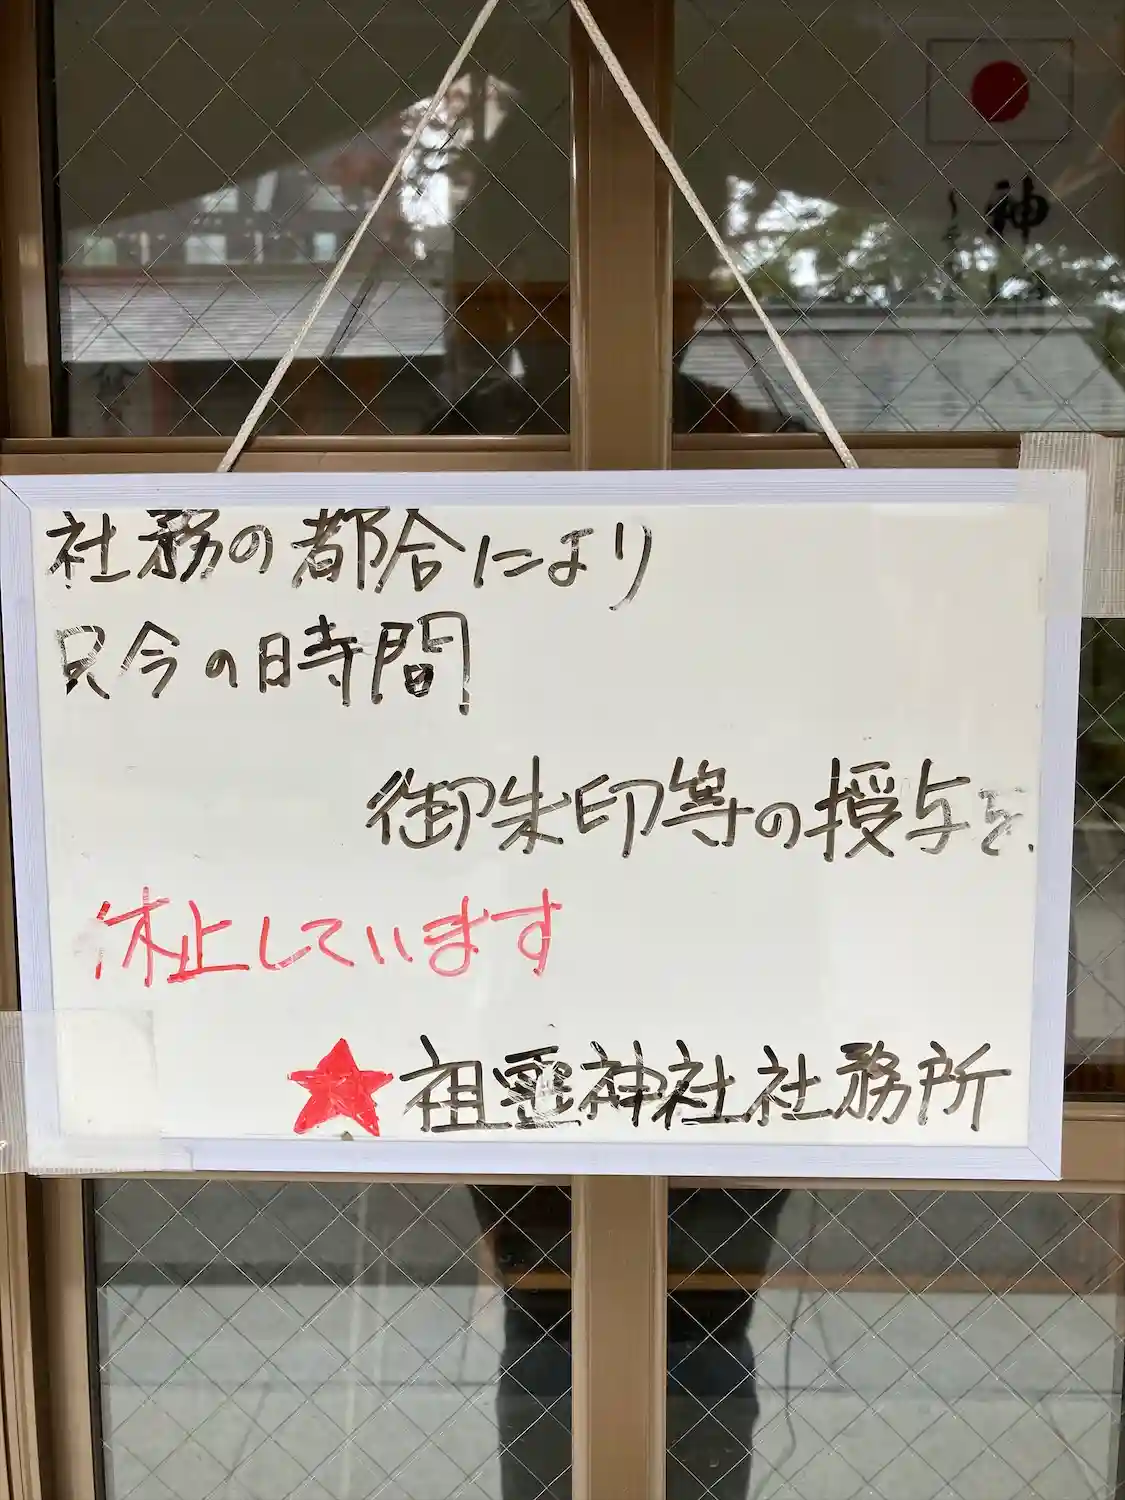 神
社務の都合により
只今の時間
御朱印等の授与を
休止しています
★祖霊神社社務所